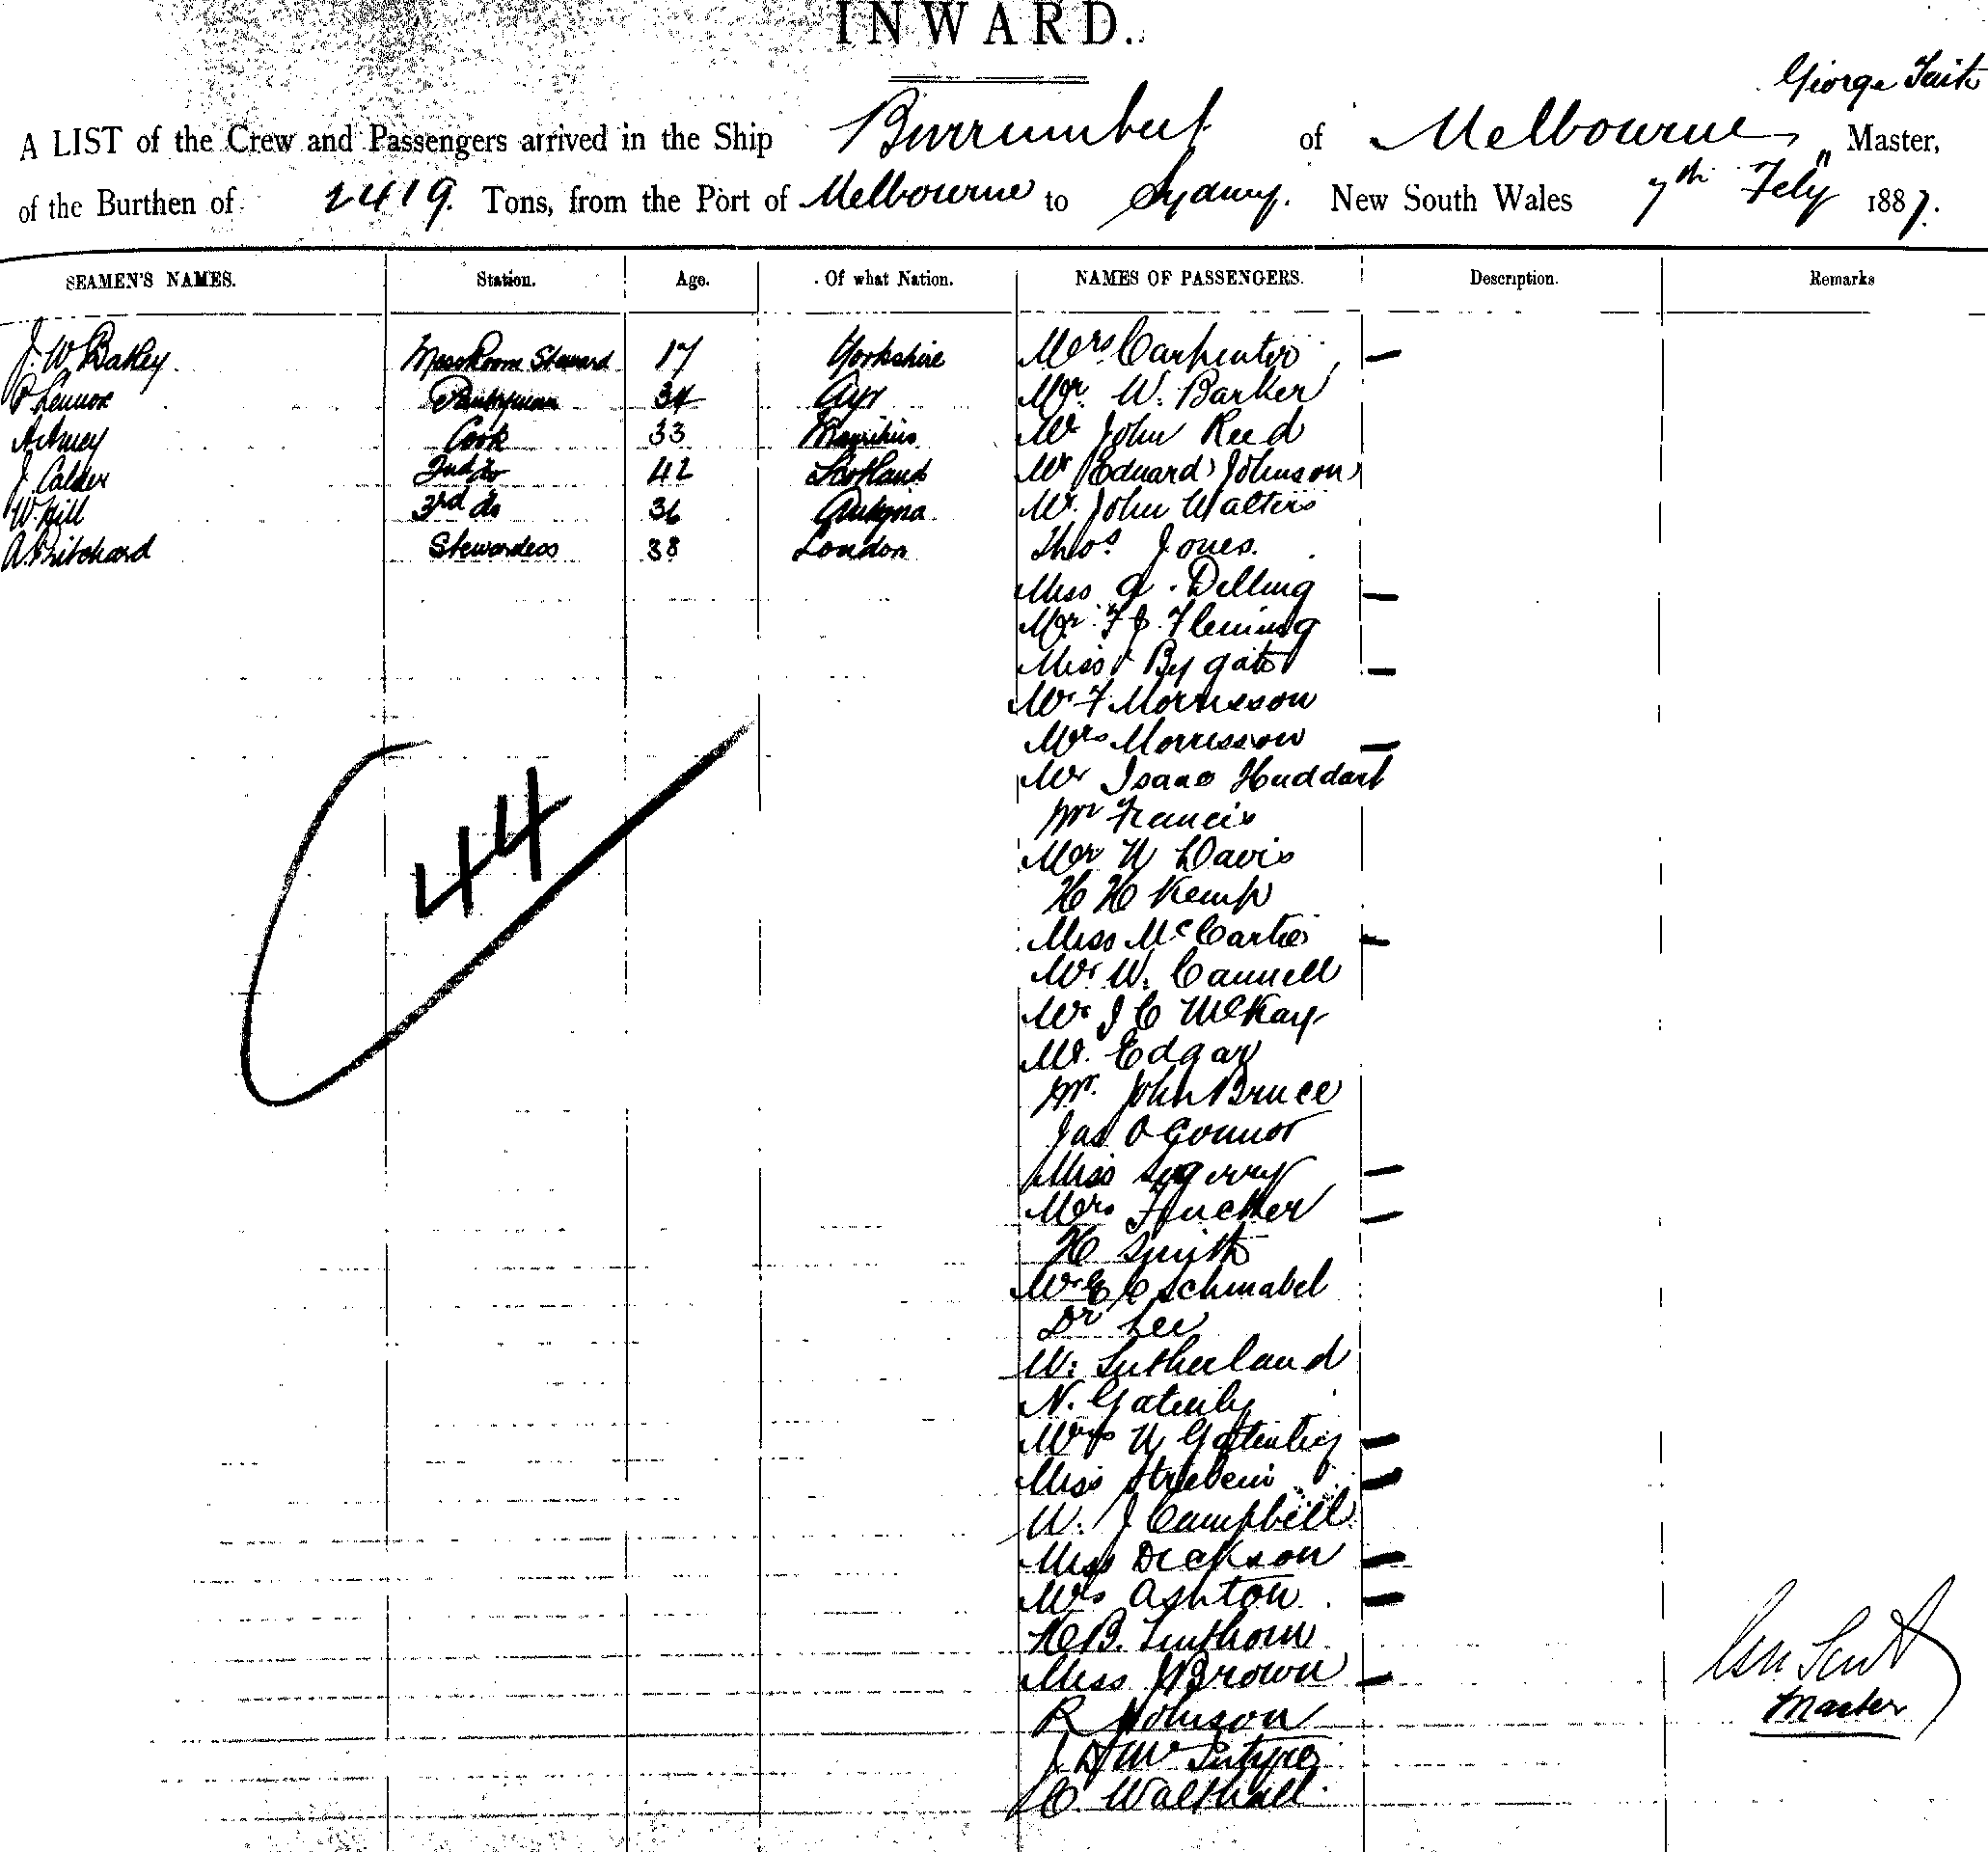 INWARD.
George Tait
A LIST of the Crew and Passengers arrived in the Ship Burrumbeet of Melbourne, Master,
of the Burthen of 2419. Tons, from the Port of Melbourne to Sydney. New South Wales 7th Feby 1887.
SEAMEN'S NAMES. Station. Age. Of what Nation. NAMES OF PASSENGERS. Description. Remarks
J. W. Bailey. Mess Room Steward 17 Yorkshire Mrs Carpenter
P Lennox Pantryman 34 Ayr Mr. W. Barker
Cook 33 Mauritius Mr John Reed
J. Calder 2nd do 42 Scotland Mr Edward Johnson
W. Hill 3rd do 36 Antigua Mr. John Walters
A. Pritchard Stewardess 38 London Thos Jones.
Miss Dilling
Mr. F J Fleming
Miss Bygate
Mr F Morrisson
Mrs Morrisson
Mr Isaac Huddart
Mr Francis
Mr W Davis
H H Kemp
Miss McCartie
44
Mr W. Cannell
Mr J C McKay
Mr. Edgar
Mr. John Bruce
Jas O Connor
Miss
Mrs
H Smith
Mr E C Schnabel
Dr Lee
W. Sutherland
N. Gatenby
Mrs N Gatenby
Miss
W. J Campbell
Miss Dickson
Mrs Ashton
H B.
Miss J Brown
R Johnson
J. McIntyre
C. Walthall
Geo Tait
Master